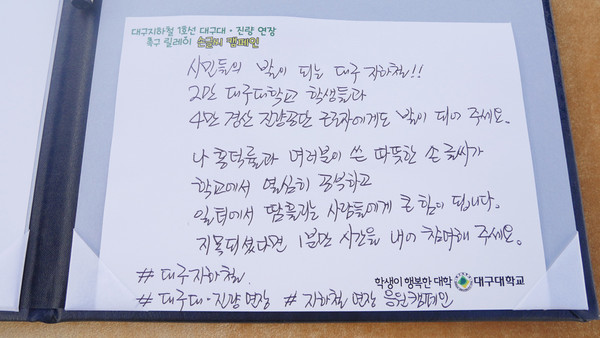 대구지하철 1호선 대구대·진량 연장
촉구 릴레이 손글씨 캠페인
시민들의 발이 되는 대구 지하철!!
2만 대구대학교 학생들과
4만 경산 진량공단 근로자에게도 발이 되어 주세요.
나 홍덕률과 여러분이 쓴 따뜻한 손 글씨가
학교에서 열심히 공부하고
일터에서 땀흘리는 사람들에게 큰 힘이 됩니다.
지목되셨다면 1분만 시간을 내어 참여해 주세요.
# 대구지하철
학생이 행복한 대학 대구대학교
# 대구대·진량 연장 # 지하철 연장 응원캠페인